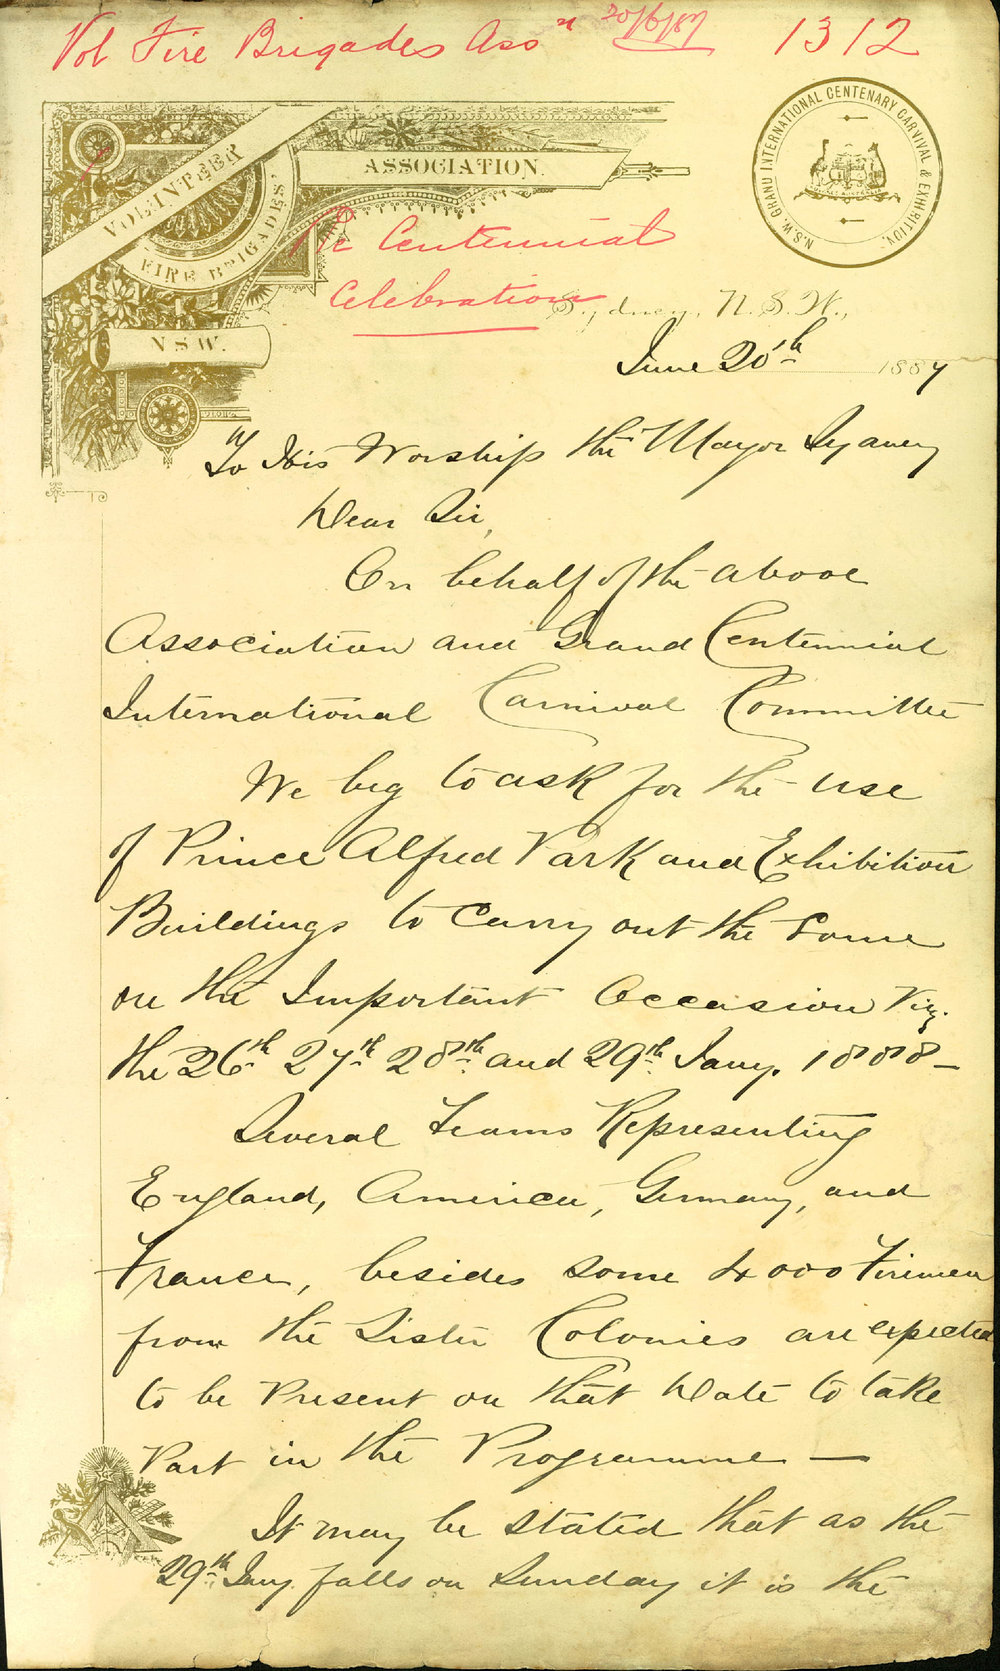 Vol Fire Brigades Assn 20/6/87 1312
N.S.W. GRAND INTERNATIONAL CENTENARY CARVIVAL & EXHIBITION.
VOLUNTEER
FIRE BRIGADES'
ASSOCIATION.
NSW.
Re Centennial
Celebration
Sydney, N.S.W.,
June 20th 1887
To His Worship the Mayor Sydney
Dear Sir,
On behalf of the above
Association and Grand Centennial
International Carnival Committee
We beg to ask for the use
of Prince Alfred Park and Exhibition
Buildings to Carry out the same
on the Important Occasion Viz.
the 26th 27th 28th and 29th Jany. 1888 —
Several Teams Representing
England, America, Germany, and
France, besides some 4000 Firemen
from the Sister Colonies are expected
to be Present on that Date to take
Part in the Programme —
It may be stated that as the
29th Jany. falls on Sunday it is the